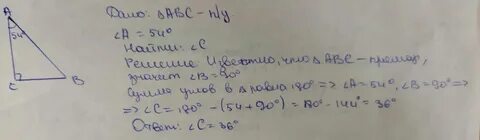 A
54°
C
B
Дано: △ABC - п/у
∠A = 54°
Найти: ∠C
Решение Известно, что △ABC - прямоуг,
значит ∠B = 90°
Сумма углов в △ равна 180° => ∠A = 54°, ∠B = 90° =>
=> ∠C = 180° - (54 + 90°) = 180° - 144° = 36°
Ответ: ∠C = 36°